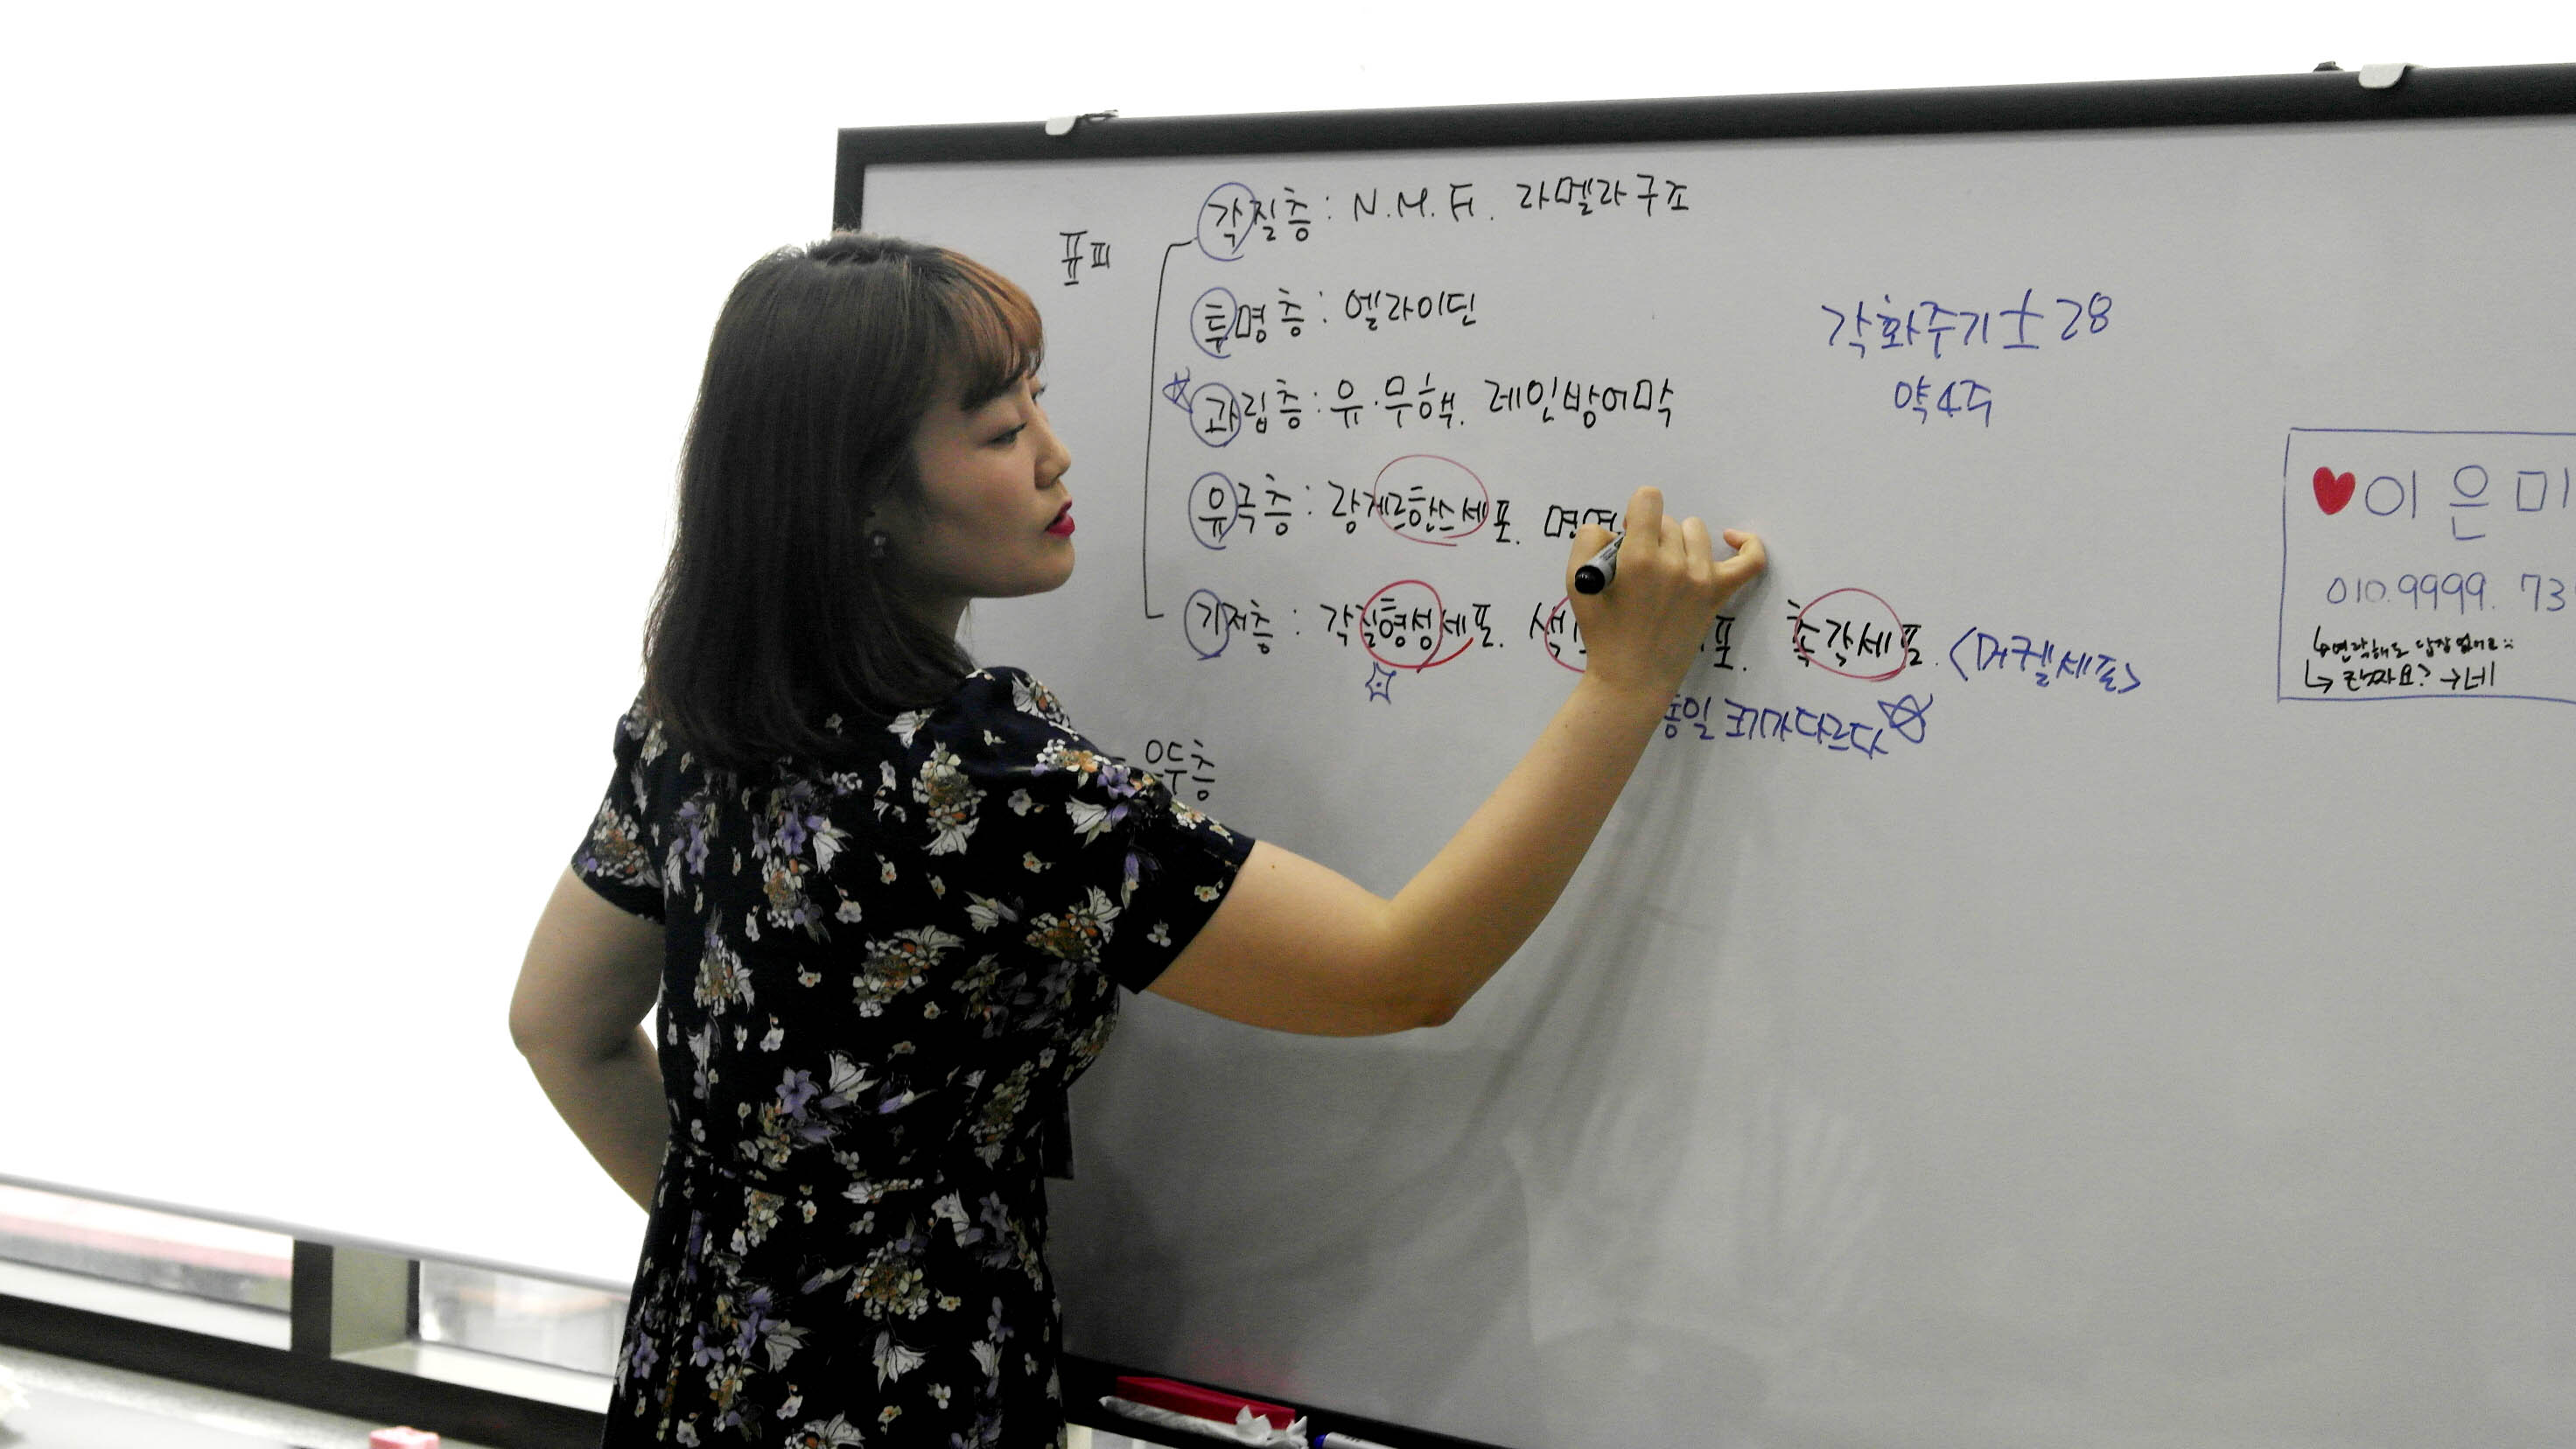 표피
각질층 : N.M.F. 라멜라구조
투명층 : 엘라이딘
과립층 : 유·무핵. 레인방어막
유극층 : 랑게르한스세포. 면역
기저층 : 각질형성세포. 색 포. 촉각세포. <머켈세포>
동일 크기가다르다
유두층
각화주기±28
약4주
♥이은미
010.9999.73
↳연락해도 답장없어요
↳진짜요? →네